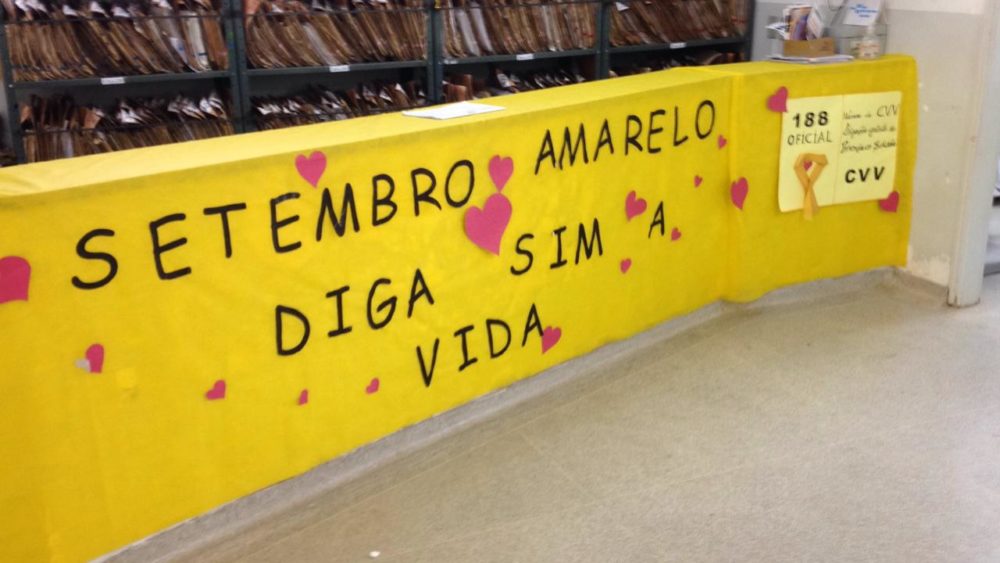 SETEMBRO AMARELO
DIGA SIM A
VIDA
188
OFICIAL
CVV
CVV